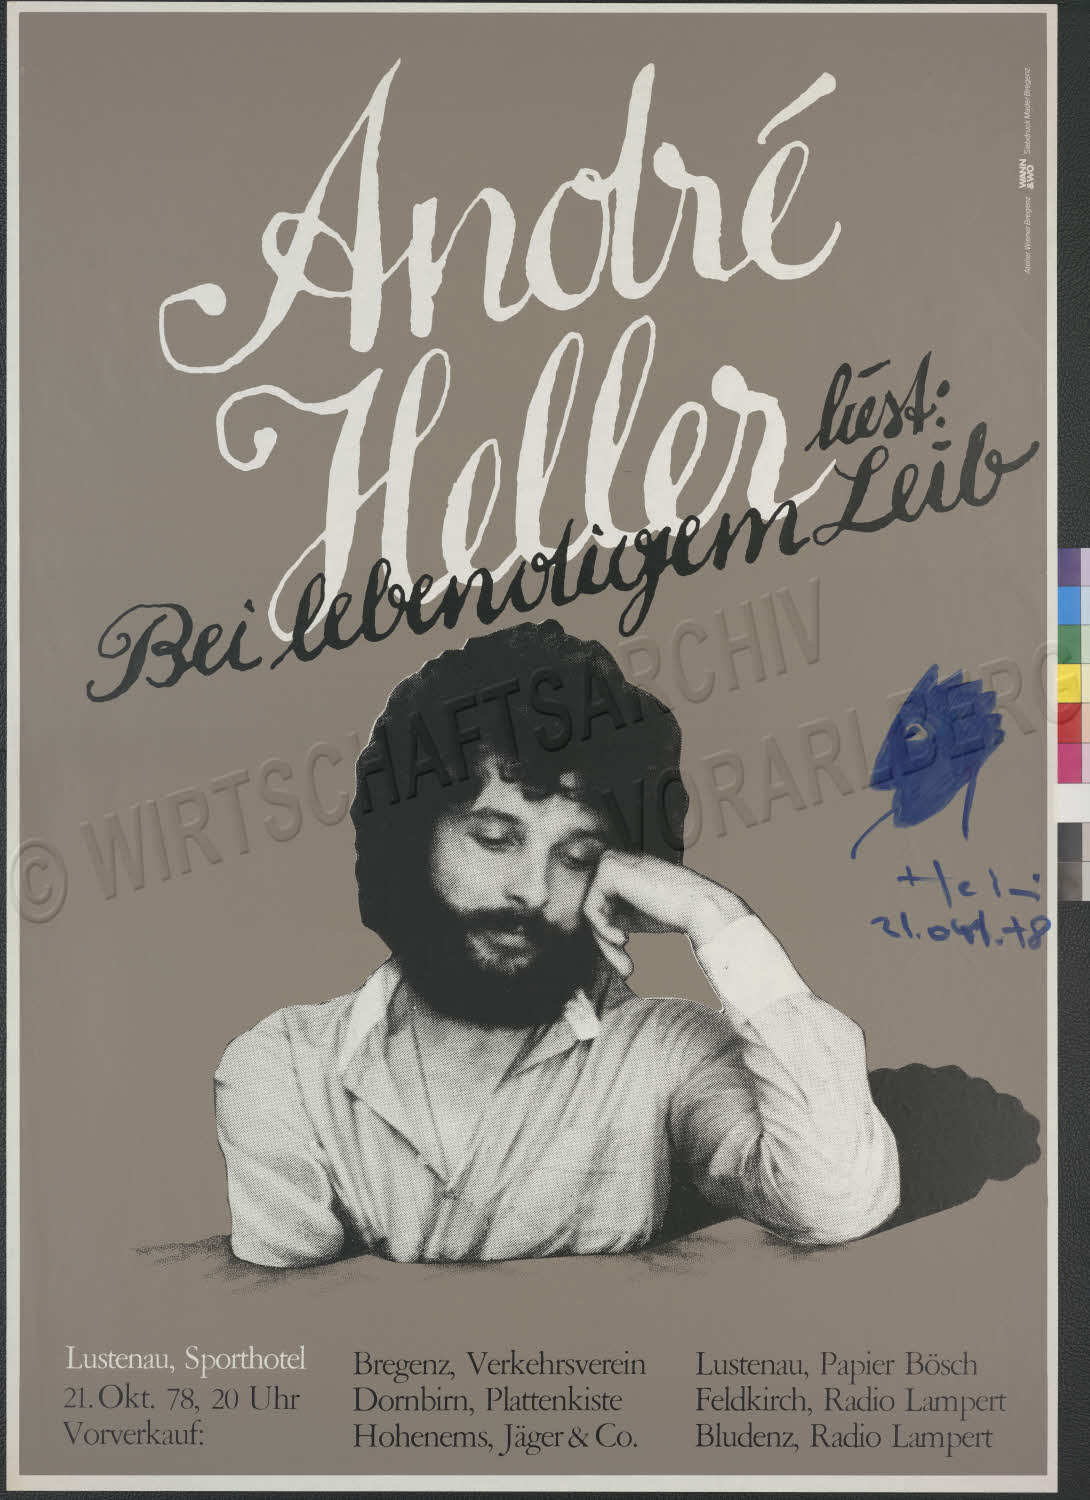 André
Heller
liest:
Bei lebendigem Leib
Atelier Wiener Bregenz WANN &WO Siebdruck Mader Bregenz
© WIRTSCHAFTSARCHIV
VORARLBERG
21. Okt. 78
Lustenau, Sporthotel
21. Okt. 78, 20 Uhr
Vorverkauf:
Bregenz, Verkehrsverein
Dornbirn, Plattenkiste
Hohenems, Jäger & Co.
Lustenau, Papier Bösch
Feldkirch, Radio Lampert
Bludenz, Radio Lampert